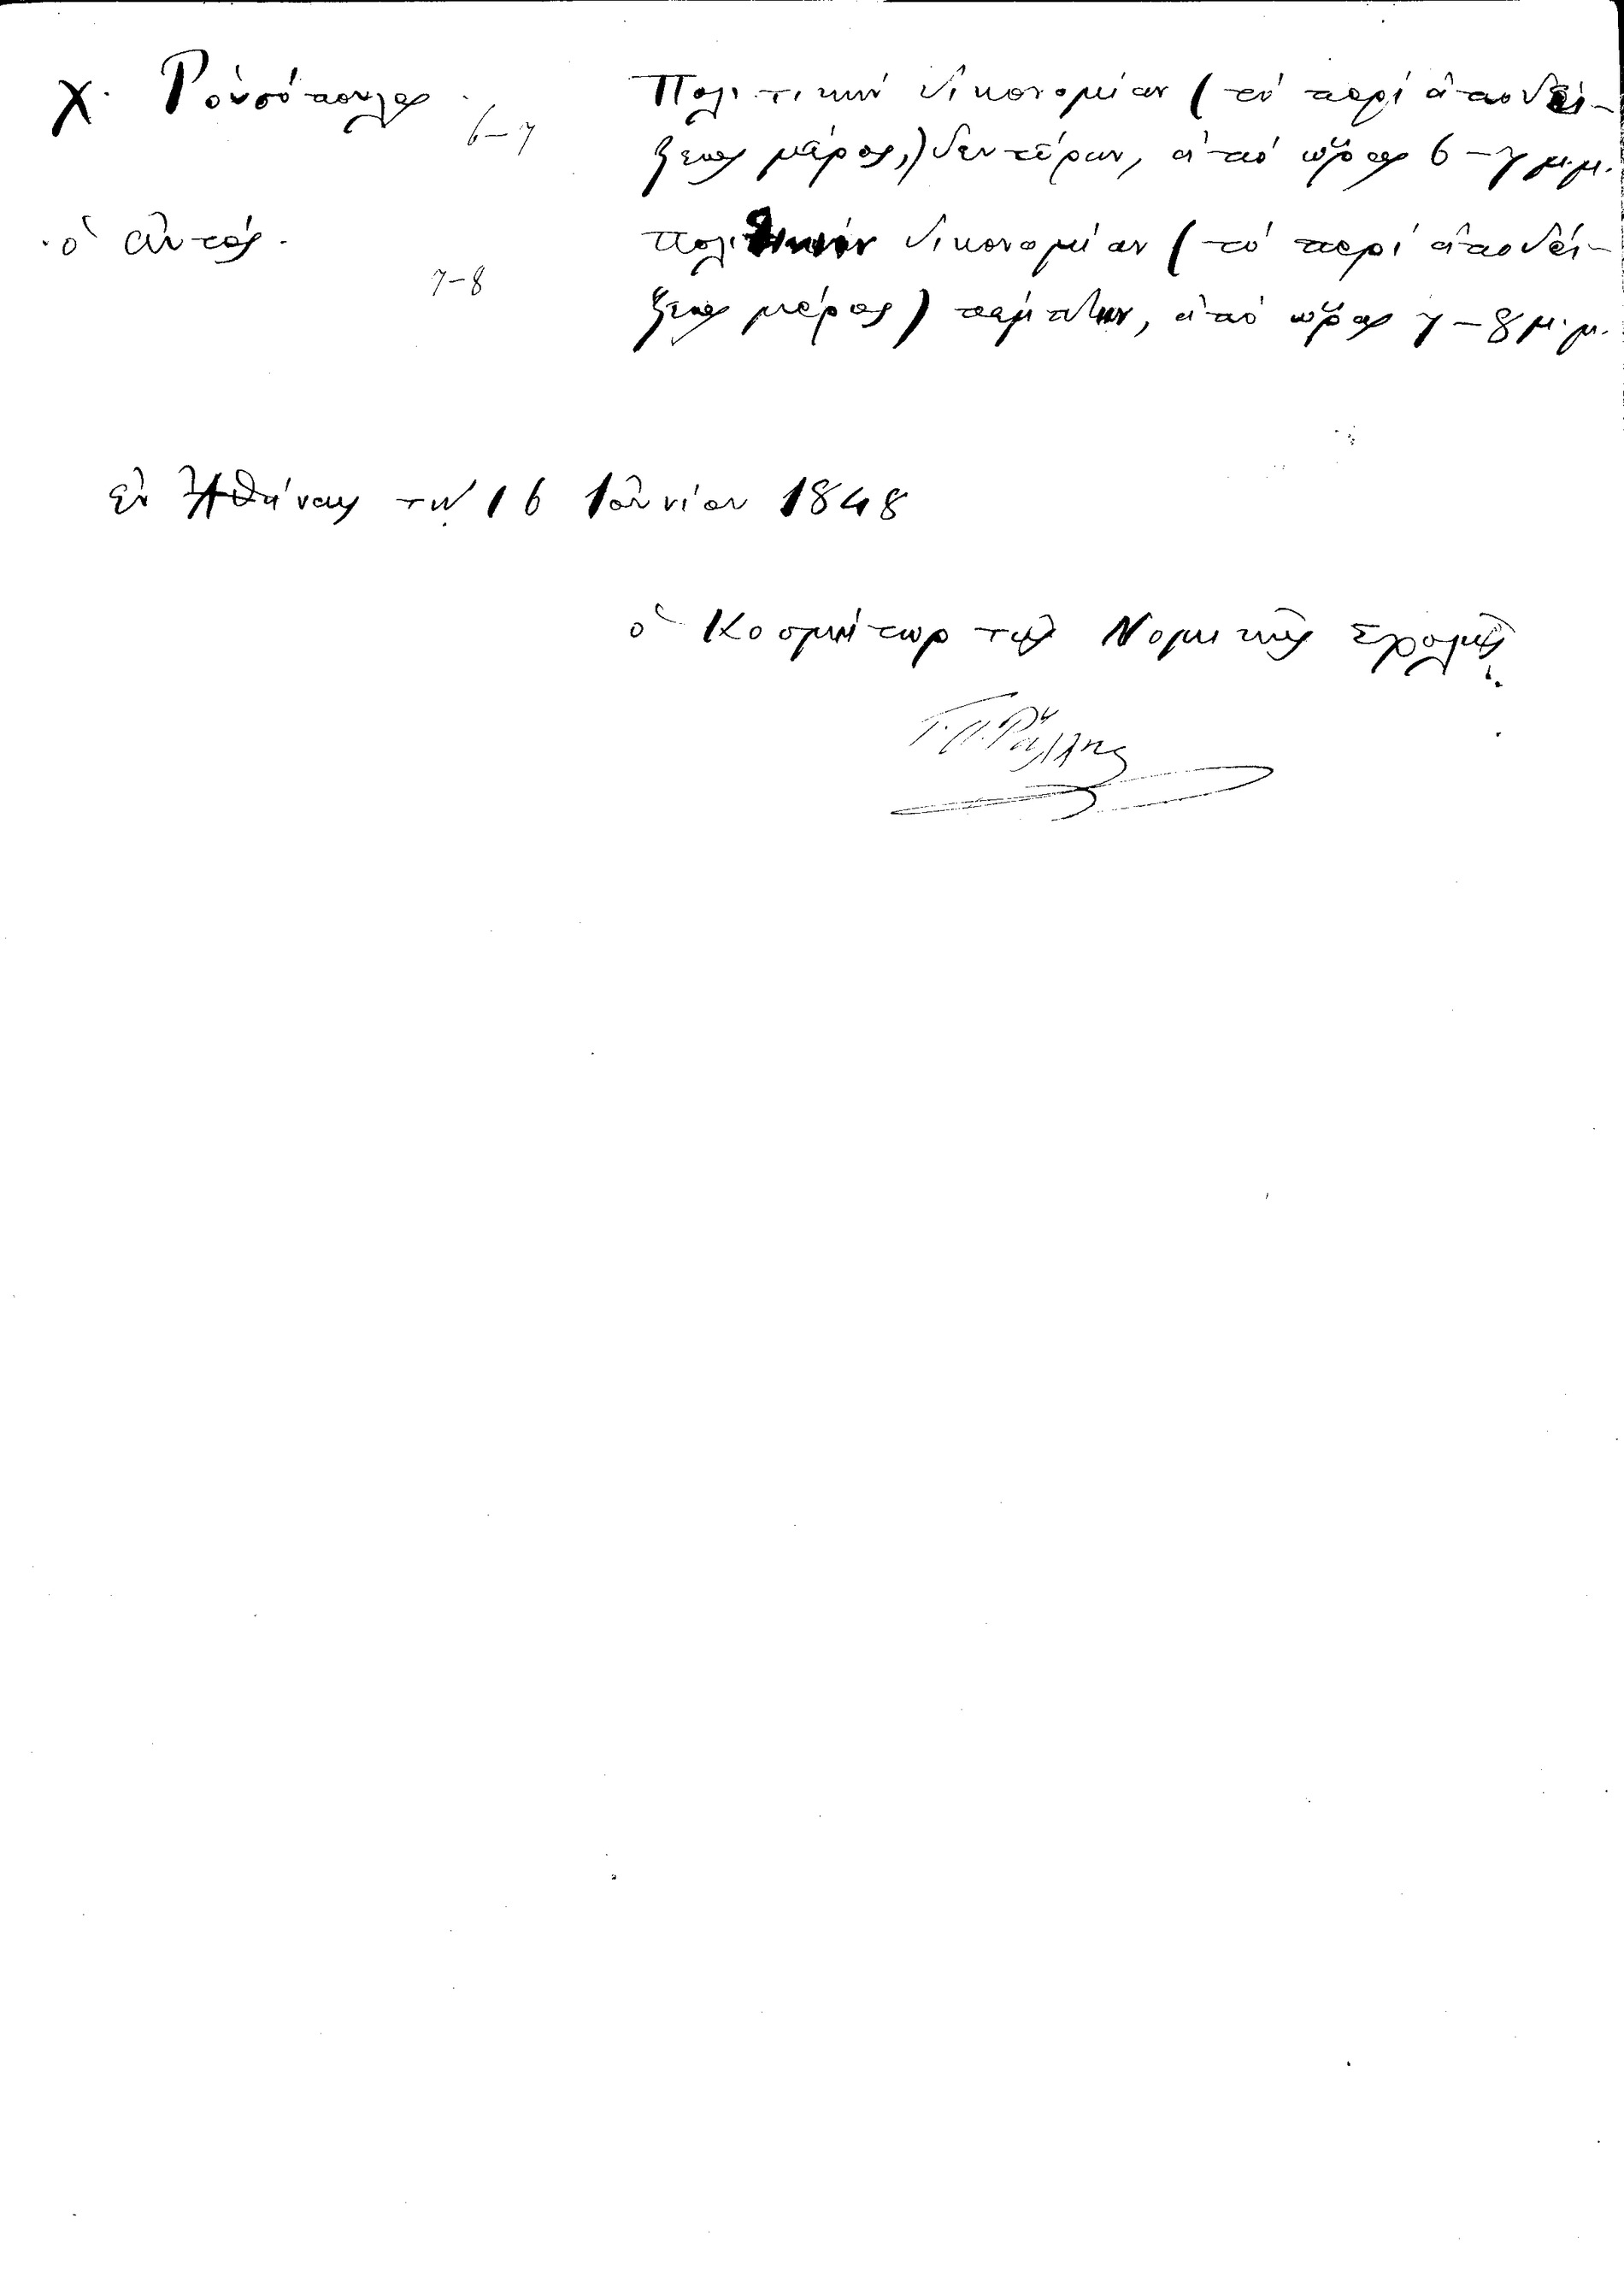 Χ. Ῥουσόπουλος
6-7
Πολιτικὴν δικονομίαν (τὸ περὶ ἀποδεί-
ξεως μέρος,) δευτέραν, ἀπὸ ὥρας 6-7 μ.μ.
ὁ αὐτός.
7-8
πολιτικὴν δικονομίαν (τὸ περὶ ἀποδεί-
ξεως μέρος) πέμπτην, ἀπὸ ὥρας 7-8 μ.μ.
ἐν Ἀθήναις τῇ 16 Ἰουνίου 1848
ὁ Κοσμήτωρ τῆς Νομικῆς Σχολῆς
Γ. Α. Ῥάλλης